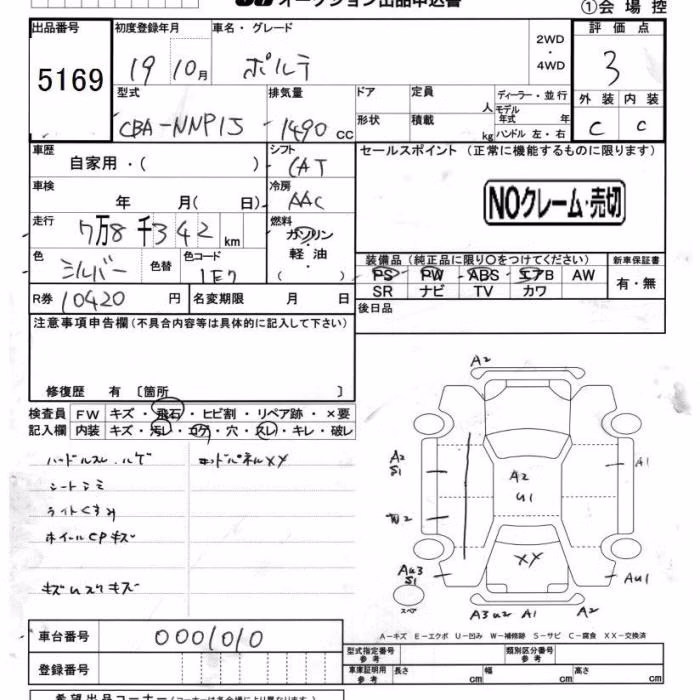 オークション出品申込書
①会場控
出品番号 初度登録年月 車名・グレード 評価点
5169 19 10月 ポルテ 2WD・4WD 3
型式 排気量 ドア 定員 人 ディーラー・並行 外装 内装
CBA-NNP15 1490 cc 形状 積載 kg モデル年式 年 ハンドル 左・右 C C
車歴 シフト セールスポイント (正常に機能するものに限ります)
自家用・( ) CAT
車検 冷房
年 月( 日) AAC NOクレーム・売切
走行 燃料
7万8千342km ガソリン・軽油 ( )
色 色替 色コード 装備品(純正品に限り○をつけてください) 新車保証書
シルバー 1E7 PS PW ABS エアB AW 有・無
SR ナビ TV カワ
R券 10420 円 名変期限 月 日 後日品
注意事項申告欄(不具合内容等は具体的に記入して下さい)
修復歴 有 〔箇所 〕
検査員 FW キズ・飛石・ヒビ割・リペア跡・×要
記入欄 内装 キズ・汚レ・コゲ・穴・スレ・キレ・破レ
ハンドルスレ.ハゲ
シートシミ
ライトくすみ
ホイールCPキズ
A2
A2 S1
A2 U1
A1
XX
AU3 S1
AU1
スペア
A3 U2 A1 A2
A-キズ E-エクボ U-凹み W-補修跡 S-サビ C-腐食 XX-交換済
車台番号 0001010
登録番号
型式指定番号 参考 類別区分番号 参考
車庫証明用 参考 長さ cm 幅 cm 高さ cm
希望出品コーナー(コーナーは各会場により異なります)